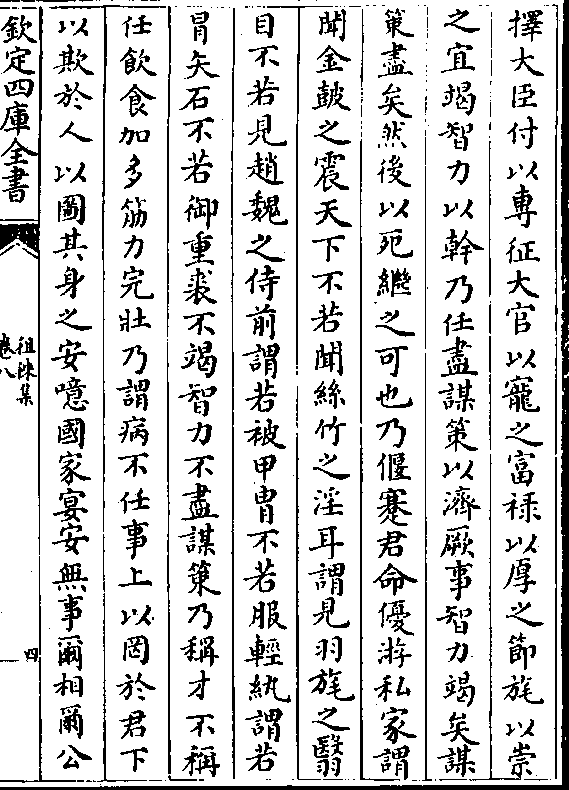 擇大臣付以專征大官以寵之富禄以厚之節旄以崇
之宜竭智力以幹乃任盡謀策以濟厥事智力竭矣謀
策盡矣然後以死繼之可也乃偃蹇君命優游私家謂
聞金鼓之震天下不若聞絲竹之淫耳謂見羽旄之翳
目不若見趙魏之侍前謂若被甲胄不若服輕紈謂若
冒矢石不若御重裘不竭智力不盡謀策乃稱才不稱
任飲食加多筋力完壯乃謂病不任事上以罔於君下
以欺於人以圖其身之安噫國家宴安無事爾相爾公
欽定四庫全書
徂徠集
卷八
四